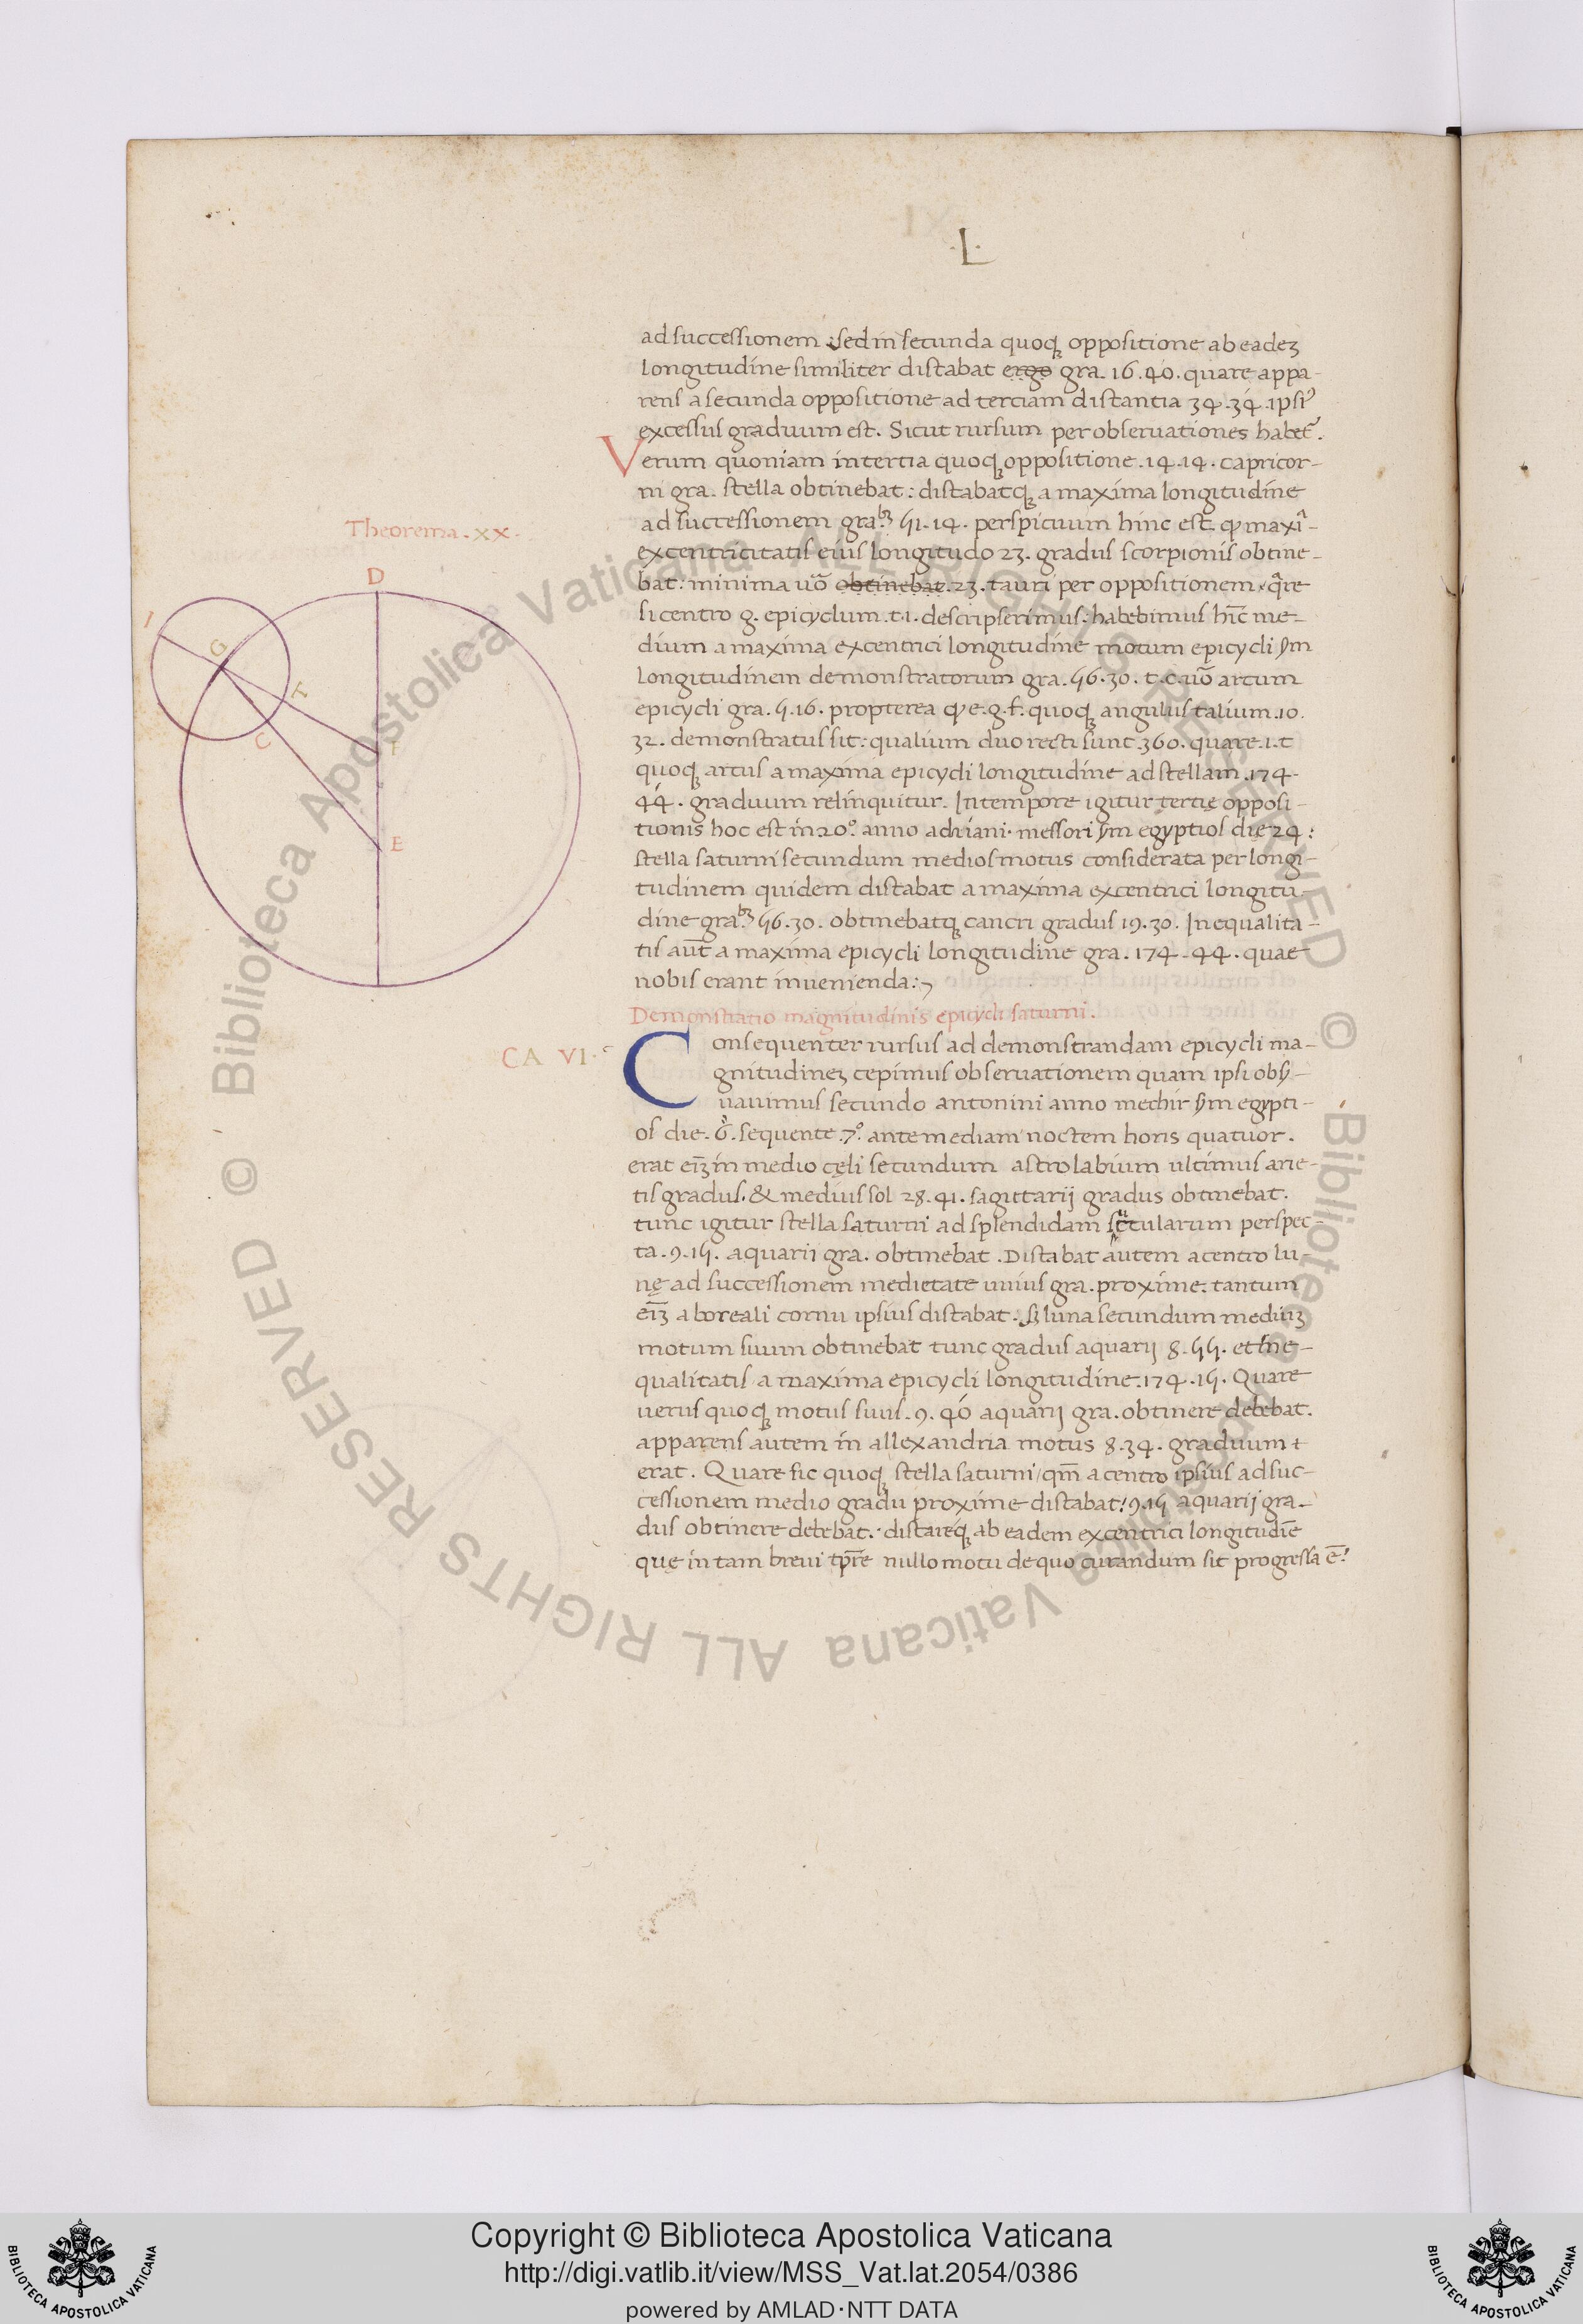 .L.
ad successionem. sed in secunda quoqꝫ oppositione ab eadeꝫ
longitudine similiter distabat ergo gra. 16.40. quare appa-
rens a secunda oppositione ad terciam distantia 34.34. ipsiꝰ
excessus graduum est. Sicut rursum per obseruationes habet᷑.
Verum quoniam in tertia quoqꝫ oppositione .14.14. capricor-
ni gra. stella obtinebat: distabatqꝫ a maxima longitudine
ad successionem gra.bꝫ 51.14. perspicuum hinc est. ꝙ maxĩa-
excentricitatis eius longitudo 23. gradus scorpionis obtine-
bat: minima uõ obtinebat .23. tauri per oppositionem. q̃re
Theorema .XX.
D
I
G
T
C
F
E
si centro g. epicyclum .t.i. descripserimus: habebimus hĩc me-
dium a maxima excentrici longitudine motum epicycli ẜm
longitudinem demonstratorum gra. 56.30. t.c. uõ arcum
epicycli gra. 5.16. propterea ꝙ e.g.f. quoqꝫ angulus talium .10.
32. demonstratus sit: qualium duo recti sunt 360. quare .i.t
quoqꝫ arcus a maxima epicycli longitudine ad stellam .174.
44. graduum relinquitur. In tempore igitur tertię opposi-
tionis hoc est in 20°. anno adriani. messori ẜm egyptios die 24:
stella saturni secundum medios motus considerata per longi-
tudinem quidem distabat a maxima excentrici longitu-
dine gra.bꝫ 56.30. obtinebatqꝫ cancri gradus 19.30. Inequalita-
tis aut̃ a maxima epicycli longitudine gra. 174.44. quae
nobis erant inuenienda:
Demonstratio magnitudinis epicycli saturni.
CA VI.
Consequenter rursus ad demonstrandam epicycli ma-
gnitudineꝫ cepimus obseruationem quam ipsi obẜ-
uauimus secundo antonini anno mechir ẜm egypti-
os die. 6. sequente .7°. ante mediam noctem horis quatuor.
erat eĩꝫ in medio cęli secundum astrolabium ultimus arie-
tis gradus. & medius sol 28.41. sagittarij gradus obtinebat.
tunc igitur stella saturni ad splendidam sucularum perspec-
ta .9.15. aquarii gra. obtinebat. Distabat autem a centro lu-
nę ad successionem medietate unius gra. proxime. tantum
eĩꝫ a boreali cornu ipsius distabat. sꝫ luna secundum mediuꝫ
motum suum obtinebat tunc gradus aquarij 8.55. et ine-
qualitatis a maxima epicycli longitudine .174.15. Quare
uerus quoqꝫ motus suus .9.40 aquarij gra. obtinere debebat.
apparens autem in allexandria motus 8.34. graduum
erat. Quare sic quoqꝫ stella saturni qm̃ a centro ipsius ad suc-
cessionem medio gradu proxime distabat: 9.15 aquarij gra-
dus obtinere debebat. distareqꝫ ab eadem excentrici longitudĩe
que in tam breui tp̃re nullo motu de quo curandum sit progressa ẽ:
© Biblioteca Apostolica Vaticana ALL RIGHTS RESERVED © Biblioteca Apostolica Vaticana ALL RIGHTS RESERVED
Copyright © Biblioteca Apostolica Vaticana
http://digi.vatlib.it/view/MSS_Vat.lat.2054/0386
powered by AMLAD·NTT DATA
BIBLIOTECA APOSTOLICA VATICANA
BIBLIOTECA APOSTOLICA VATICANA